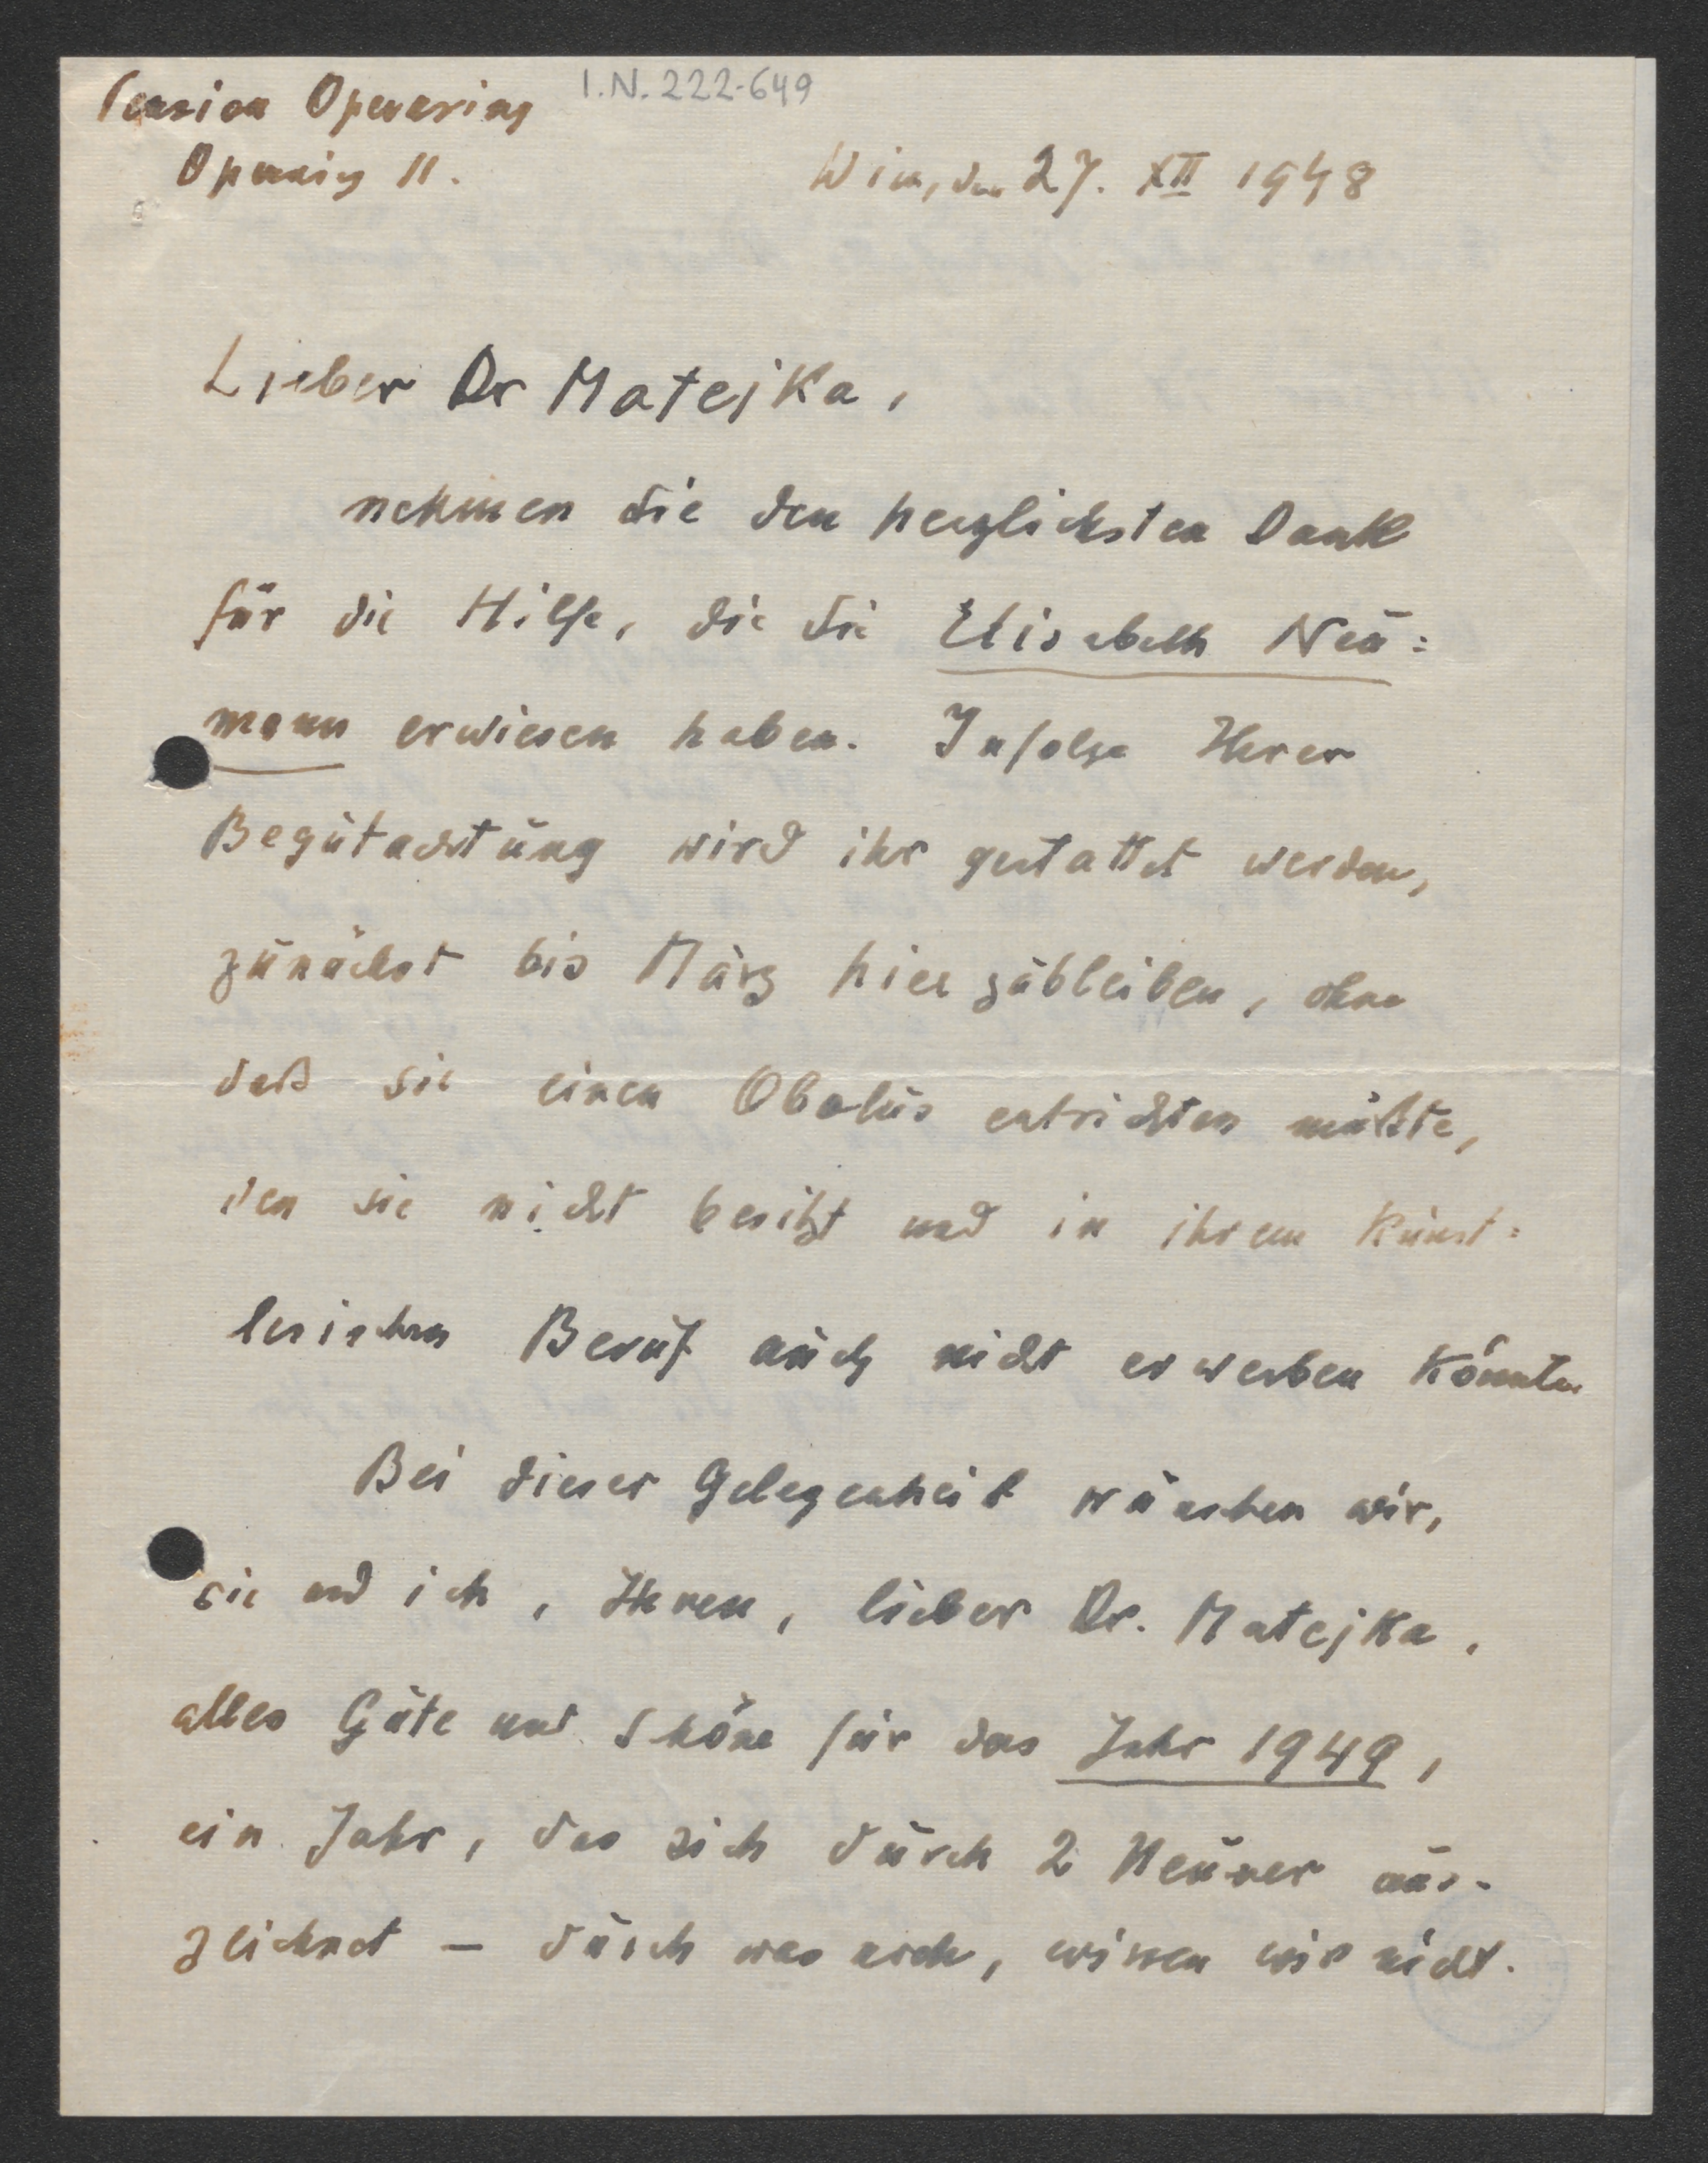 Pension Opernring
I.N. 222.649
Opernring 11.
Wien, den 27. XII 1948
Lieber Dr Matejka,
nehmen Sie den herzlichsten Dank
für die Hilfe, die Sie Elisabeth Neu=
mann erwiesen haben. Infolge Ihrer
Begutachtung wird ihr gestattet werden,
zunächst bis März hier zubleiben, ohne
daß sie einen Obolus entrichten müßte,
den sie nicht besitzt und in ihrem künst=
lerischen Beruf auch nicht erwerben könnte.
Bei dieser Gelegenheit wünschen wir,
sie und ich, Ihnen, lieber Dr. Matejka,
alles Gute und Schöne für das Jahr 1949,
ein Jahr, das sich durch 2 Neuner aus-
zeichnet – durch was noch, wissen wir nicht.